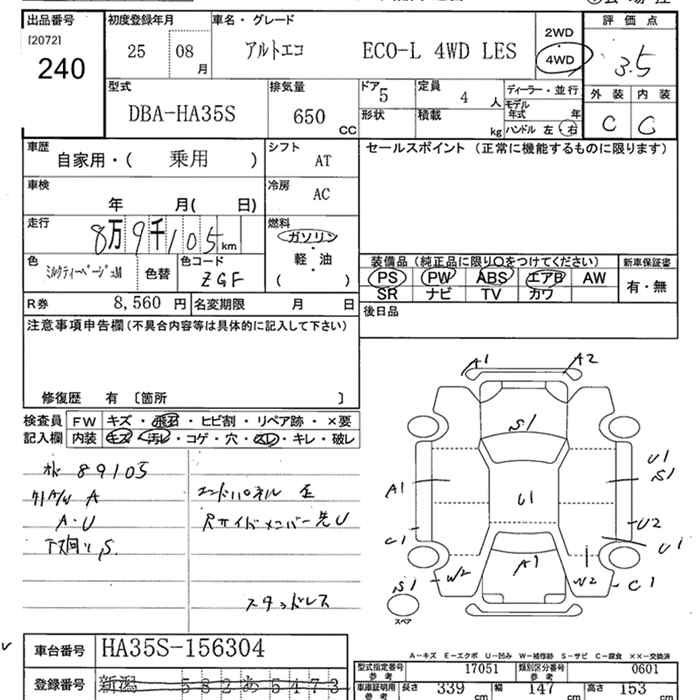 出品番号 初度登録年月 車名・グレード 2WD 評価点
[2072] 240 25 08月 アルトエコ ECO-L 4WD LES 4WD 3.5
外装 内装
C C
型式 排気量 ドア 5 定員 4 人 ディーラー・並行
DBA-HA35S 650 CC 形状 積載 kg モデル年式 年
ハンドル 左 右
車歴 自家用・( 乗用 ) シフト AT セールスポイント (正常に機能するものに限ります)
車検 年 月( 日) 冷房 AC
走行 8万9千105km 燃料 ガソリン・軽・油 ( )
装備品 (純正品に限り○をつけてください) 新車保証書
色 ミルクティーベージュM 色替 色コード ZGF
PS PW ABS エアB AW 有・無
SR ナビ TV カワ
R券 8,560 円 名変期限 月 日
後日品
注意事項申告欄(不具合内容等は具体的に記入して下さい)
修復歴 有 〔箇所 〕
検査員 FW キズ・飛石・ヒビ割・リペア跡・×要
記入欄 内装 キズ・汚レ・コゲ・穴・スレ・キレ・破レ
89105
A
A・U
下廻り S
エンドパネル 歪
Rサイドメンバー先U
スタッドレス
A1 A2
S1
U1 S1
A1 U1
U2
C1 U1
A1
S1 W2 W2 C1
スペア
A-キズ E-エクボ U-凹み W-補修跡 S-サビ C-腐食 ××-交換済
車台番号 HA35S-156304
型式指定番号 参考 17051 類別区分番号 参考 0601
登録番号 新潟 582 あ 5473
車庫証明用 参考 長さ 339 cm 幅 147 cm 高さ 153 cm